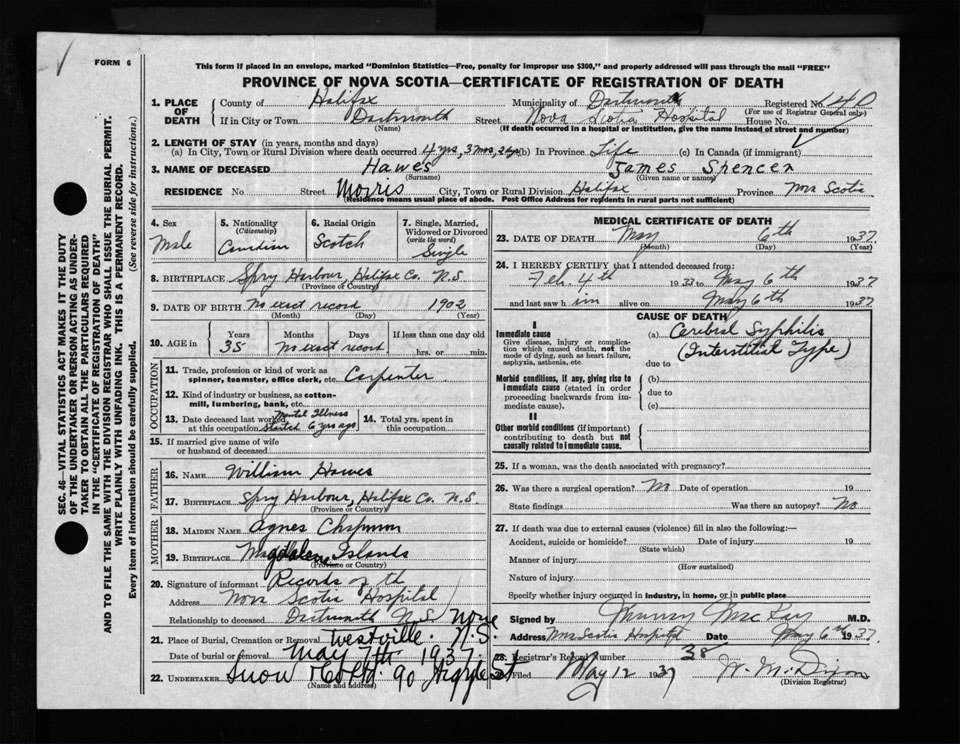 FORM 6
This form if placed in an envelope, marked "Dominion Statistics—Free, penalty for improper use $300," and properly addressed will pass through the mail "FREE"
PROVINCE OF NOVA SCOTIA—CERTIFICATE OF REGISTRATION OF DEATH
1. PLACE OF DEATH County of Halifax Municipality of Dartmouth Registered No. 140
(For use of Registrar General only)
If in City or Town Dartmouth Street Nova Scotia Hospital House No.
(Name) (If death occurred in a hospital or institution, give the name instead of street and number)
2. LENGTH OF STAY (in years, months and days)
(a) In City, Town or Rural Division where death occurred 4 yrs, 3 mos, 2 dys (b) In Province Life (c) In Canada (if immigrant)
3. NAME OF DECEASED Hawes James Spencer
(Surname) (Given name or names)
RESIDENCE No. Street Morris City, Town or Rural Division Halifax Province Nova Scotia
(Residence means usual place of abode. Post Office Address for residents in rural parts not sufficient)
4. Sex Male
5. Nationality (Citizenship) Canadian
6. Racial Origin Scotch
7. Single, Married, Widowed or Divorced (write the word) Single
8. BIRTHPLACE Spry Harbour, Halifax Co. N.S.
(Province or Country)
9. DATE OF BIRTH No exact record 1902
(Month) (Day) (Year)
10. AGE in Years 35 Months Days No exact record If less than one day old hrs. or min.
OCCUPATION
11. Trade, profession or kind of work as spinner, teamster, office clerk, etc. Carpenter
12. Kind of industry or business, as cotton-mill, lumbering, bank, etc.
13. Date deceased last worked at this occupation Mental Illness started 6 yrs ago
14. Total yrs. spent in this occupation
15. If married give name of wife or husband of deceased
FATHER
16. NAME William Hawes
17. BIRTHPLACE Spry Harbour, Halifax Co. N.S.
(Province or Country)
MOTHER
18. MAIDEN NAME Agnes Chapman
19. BIRTHPLACE Magdalene Islands
(Province or Country)
20. Signature of informant Records of the
Address Nova Scotia Hospital
Relationship to deceased Dartmouth N.S. none
21. Place of Burial, Cremation or Removal Westville. N.S.
Date of burial or removal May 7th 1937.
22. UNDERTAKER Snow & Co Ltd. 90 Argyle St
(Name and address)
MEDICAL CERTIFICATE OF DEATH
23. DATE OF DEATH May 6th 1937
(Month) (Day) (Year)
24. I HEREBY CERTIFY that I attended deceased from:
Feb. 4th 1933 to May 6th 1937
and last saw him alive on May 6th 1937
CAUSE OF DEATH
I
Immediate cause
Give disease, injury or complication which caused death, not the mode of dying, such as heart failure, asphyxia, asthenia, etc.
(a) Cerebral Syphilis
(Interstitial Type)
due to
Morbid conditions, if any, giving rise to immediate cause (stated in order proceeding backwards from immediate cause).
(b)
due to
(c)
II
Other morbid conditions (if important) contributing to death but not causally related to immediate cause.
25. If a woman, was the death associated with pregnancy?
26. Was there a surgical operation? No Date of operation 19
State findings Was there an autopsy? No
27. If death was due to external causes (violence) fill in also the following:—
Accident, suicide or homicide? Date of injury 19
(State which)
Manner of injury
(How sustained)
Nature of injury
Specify whether injury occurred in industry, in home, or in public place
Signed by Murray MacKay M.D.
Address Nova Scotia Hospital Date May 6th 1937.
28. Registrar's Record Number 38
Filed May 12 1937 W. M. Dixon
(Division Registrar)
SEC. 46—VITAL STATISTICS ACT MAKES IT THE DUTY
OF THE UNDERTAKER OR PERSON ACTING AS UNDER-
TAKER TO OBTAIN ALL THE PARTICULARS REQUIRED
IN THE "CERTIFICATE OF REGISTRATION OF DEATH"
AND TO FILE THE SAME WITH THE DIVISION REGISTRAR WHO SHALL ISSUE THE BURIAL PERMIT.
WRITE PLAINLY WITH UNFADING INK. THIS IS A PERMANENT RECORD.
Every item of information should be carefully supplied. (See reverse side for instructions.)